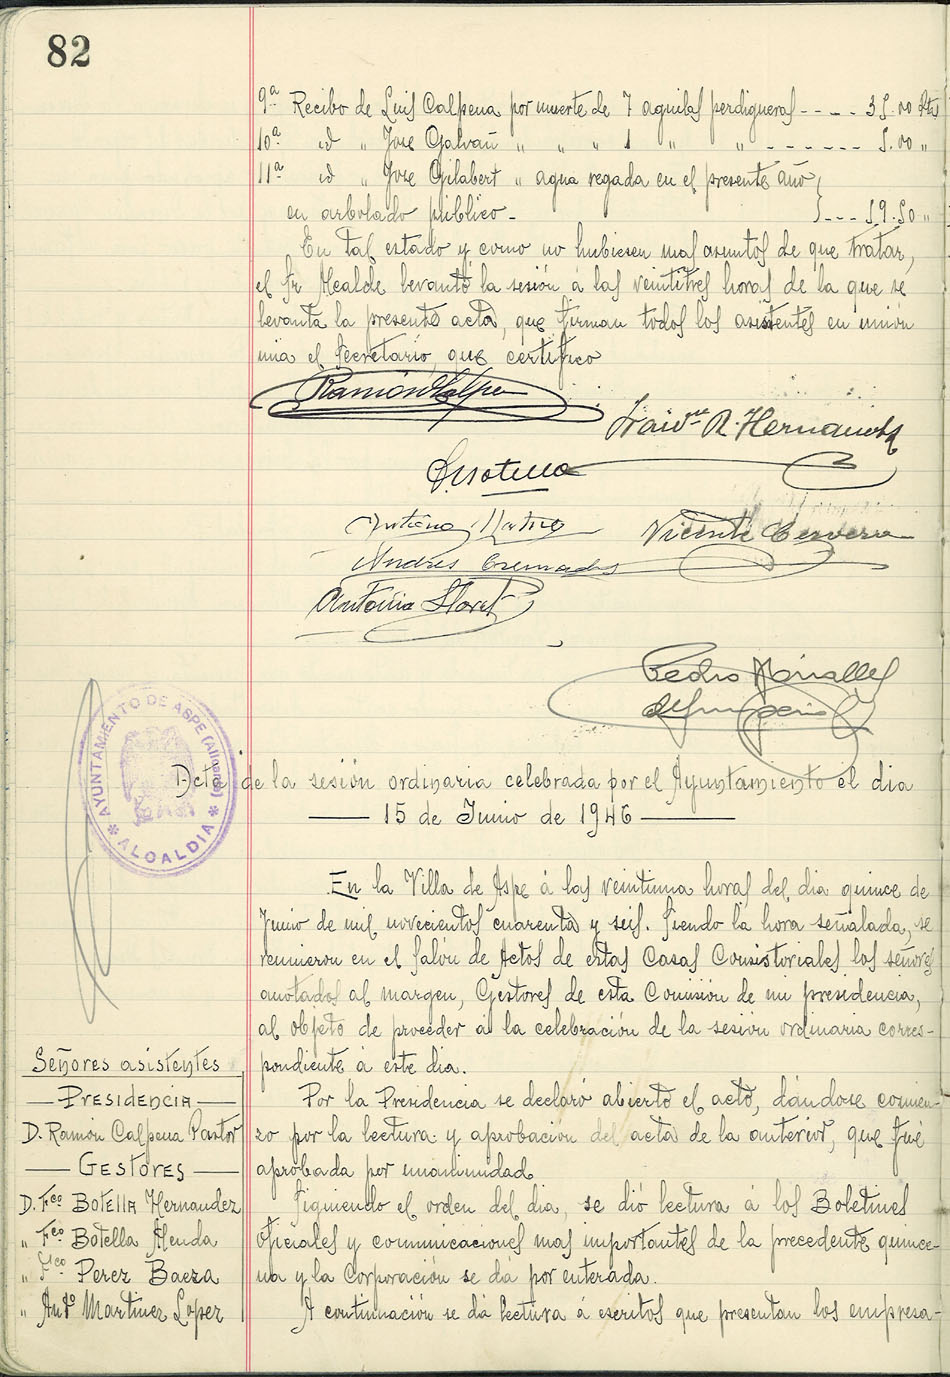 82
9ª Recibo de Luis Calpena por muerte de 7 aguilas perdigueras - - - - 35.00 Pts
10ª id " Jose Galvañ " " " 1 " " - - - - - - 5.00 "
11ª id " Jose Gilabert " agua regada en el presente año
en arbolado público - - - - 59.50 "
En tal estado y como no hubiesen mas asuntos de que tratar,
el Sr Alcalde levantó la sesión á las veintitres horas de la que se
levanta la presente acta, que firman todos los asistentes en unión
mia el Secretario, que certifico
Ramón Calpena
R. Hernandez
Vicente Cervera
Andres Cremades
Antonio Lloret
Pedro Miralles
AYUNTAMIENTO DE ASPE (Alicante)
* ALCALDIA *
Acta de la sesión ordinaria celebrada por el Ayuntamiento el dia
15 de Junio de 1946
En la Villa de Aspe á las veintiuna horas del dia quince de
Junio de mil novecientos cuarenta y seis. Siendo la hora señalada, se
reunieron en el Salón de Actos de estas Casas Consistoriales los señores
anotados al margen, Gestores de esta Comisión de mi presidencia,
al objeto de proceder á la celebración de la sesión ordinaria corres-
pondiente á este dia.
Por la Presidencia se declaró abierto el acto, dándose comien-
zo por la lectura y aprobación del acta de la anterior, que fué
aprobada por unanimidad.
Siguiendo el orden del dia, se dió lectura á los Boletines
Oficiales y comunicaciones mas importantes de la precedente quince-
na y la Corporación se dá por enterada.
A continuación se dá lectura á escritos que presentan los empresa-
Señores asistentes
PRESIDENCIA
D. Ramón Calpena Pastor
GESTORES
D. Fco Botella Hernandez
" Fco Botella Almda
" Fco Perez Baeza
" Antº Martinez Lopez